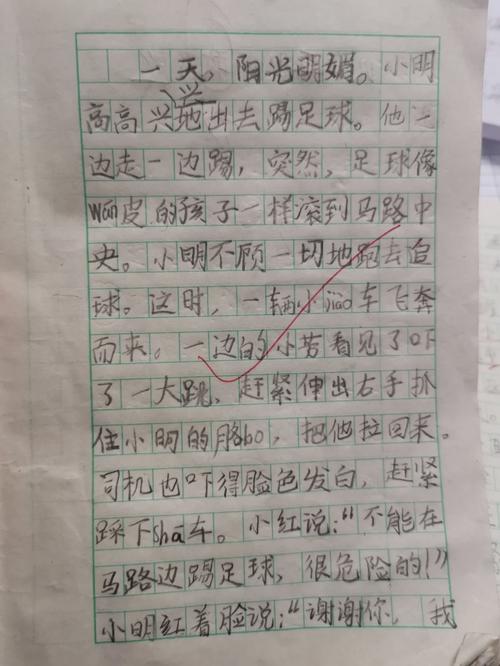 一天，阳光明媚。小明
高高兴兴地出去踢足球。他一
边走一边踢，突然，足球像
wán皮的孩子一样滚到马路中
央。小明不顾一切地跑去追
球。这时，一辆小jiao车飞奔
而来。一边的小芳看见了吓
了一大跳，赶紧伸出右手抓
住小明的胳bo，把他拉回来。
司机也吓得脸色发白，赶紧
踩下shā车。小红说：“不能在
马路边踢足球，很危险的！”
小明红着脸说：“谢谢你，我